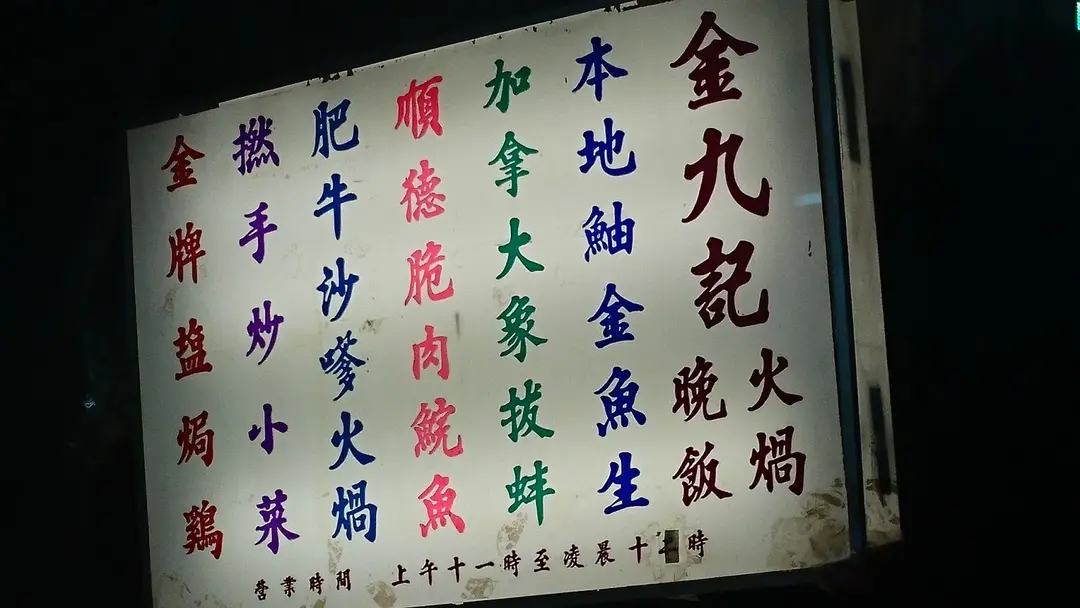 金九記
火煱
晚飯
本地鮋金魚生
加拿大象拔蚌
順德脆肉鯇魚
肥牛沙嗲火煱
撚手炒小菜
金牌塩焗鷄
營業時間 上午十一時至凌晨十時